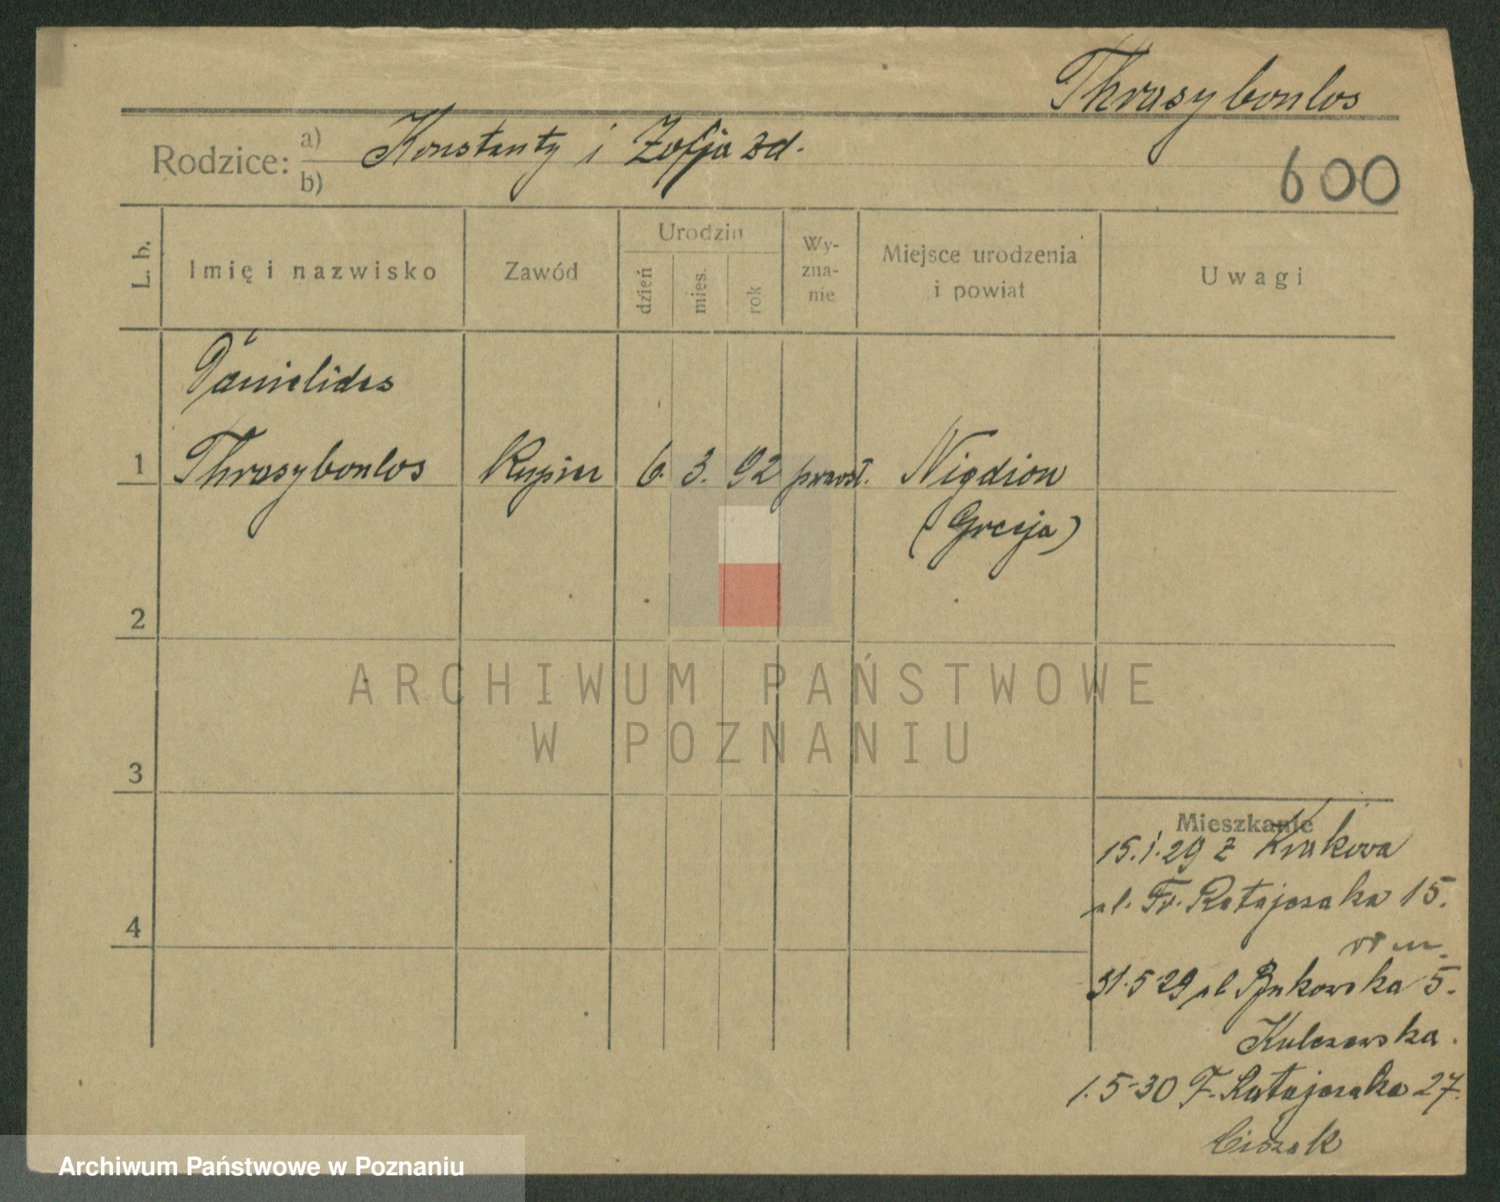 Thrasyboulos
Rodzice: a) Konstanty i Zofja zd.
b)
600
L. b.
Imię i nazwisko
Zawód
Urodzin
dzień
mies.
rok
Wy-
zna-
nie
Miejsce urodzenia
i powiat
Uwagi
Danielides
1 Thrasyboulos Kupiec 6. 3. 92 prawosł. Nigdion
(Grecja)
2
ARCHIWUM PAŃSTWOWE
W POZNANIU
3
Mieszkanie
15.1.29 z Krakowa
ul. Fr. Ratajczaka 15.
4
31.5 29 ul Bukowska 5.
Kulczewska.
1.5-30 F. Ratajczaka 27.
Ciszak
Archiwum Państwowe w Poznaniu